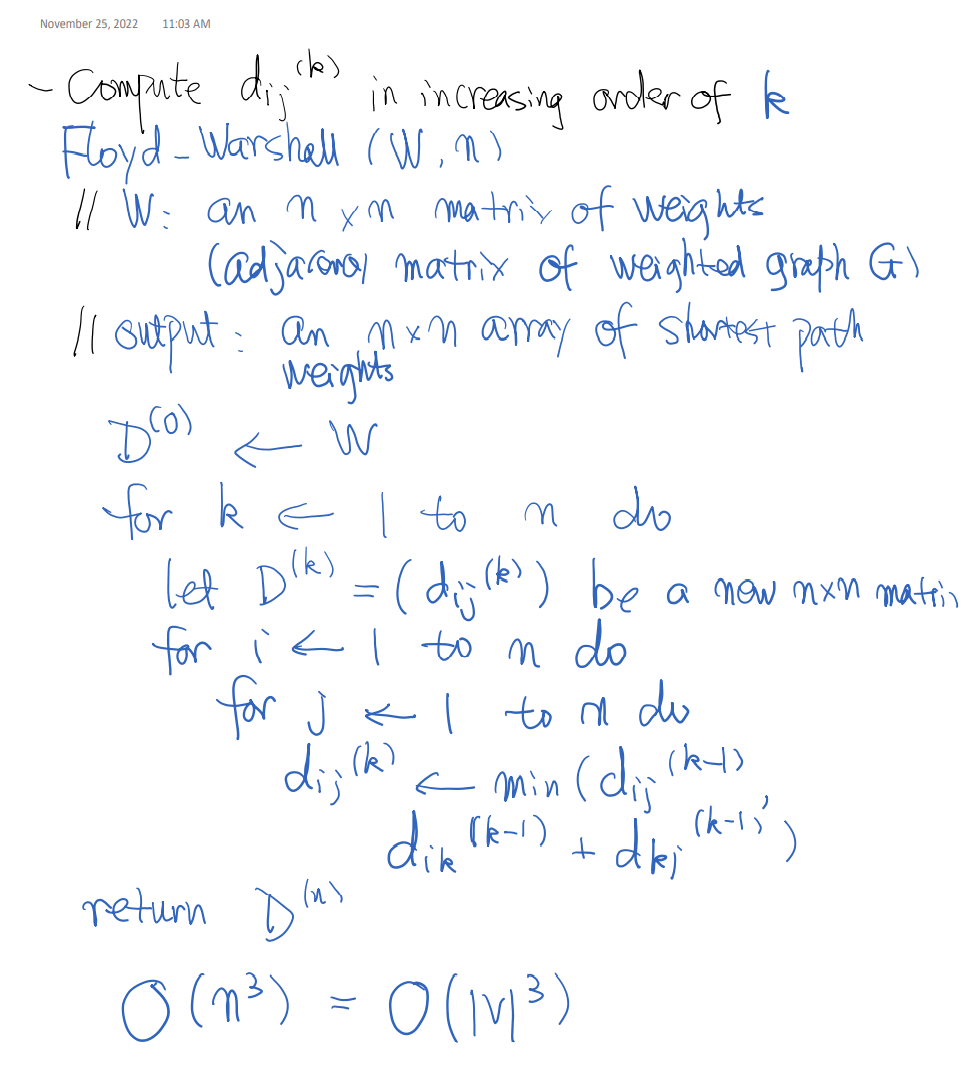 November 25, 2022 11:03 AM
- Compute dij^(k) in increasing order of k
Floyd-Warshall (W, n)
// W: an n x n matrix of weights
(adjacency matrix of weighted graph G)
// output: an n x n array of shortest path
weights
D^(0) ← W
for k ← 1 to n do
let D^(k) = (dij^(k)) be a new nxn matrix
for i ← 1 to n do
for j ← 1 to n do
dij^(k) ← min(dij^(k-1),
dik^(k-1) + dkj^(k-1))
return D^(n)
O(n^3) = O(|V|^3)